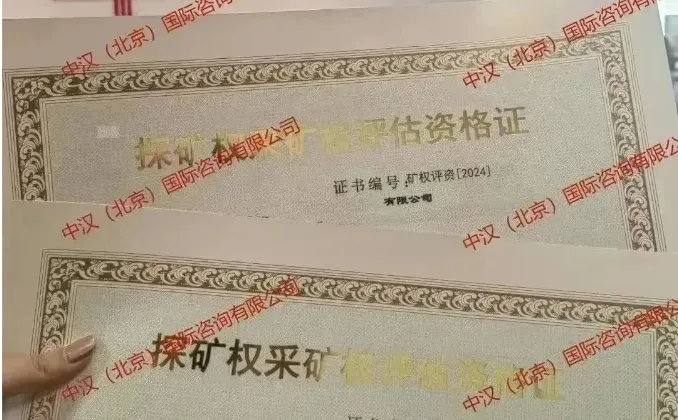 中汉（北京）国际咨询有限公司
中汉（北京）国际咨询有限公司
探矿权采矿权评估资格证
证书编号:矿权评资[2024]
有限公司
中汉（北京）国际咨询有限公司
中汉（北京）国际咨询有限公司
探矿权采矿权评估资格证
中汉（北京）国际咨询有限公司
中汉（北京）国际咨询有限公司